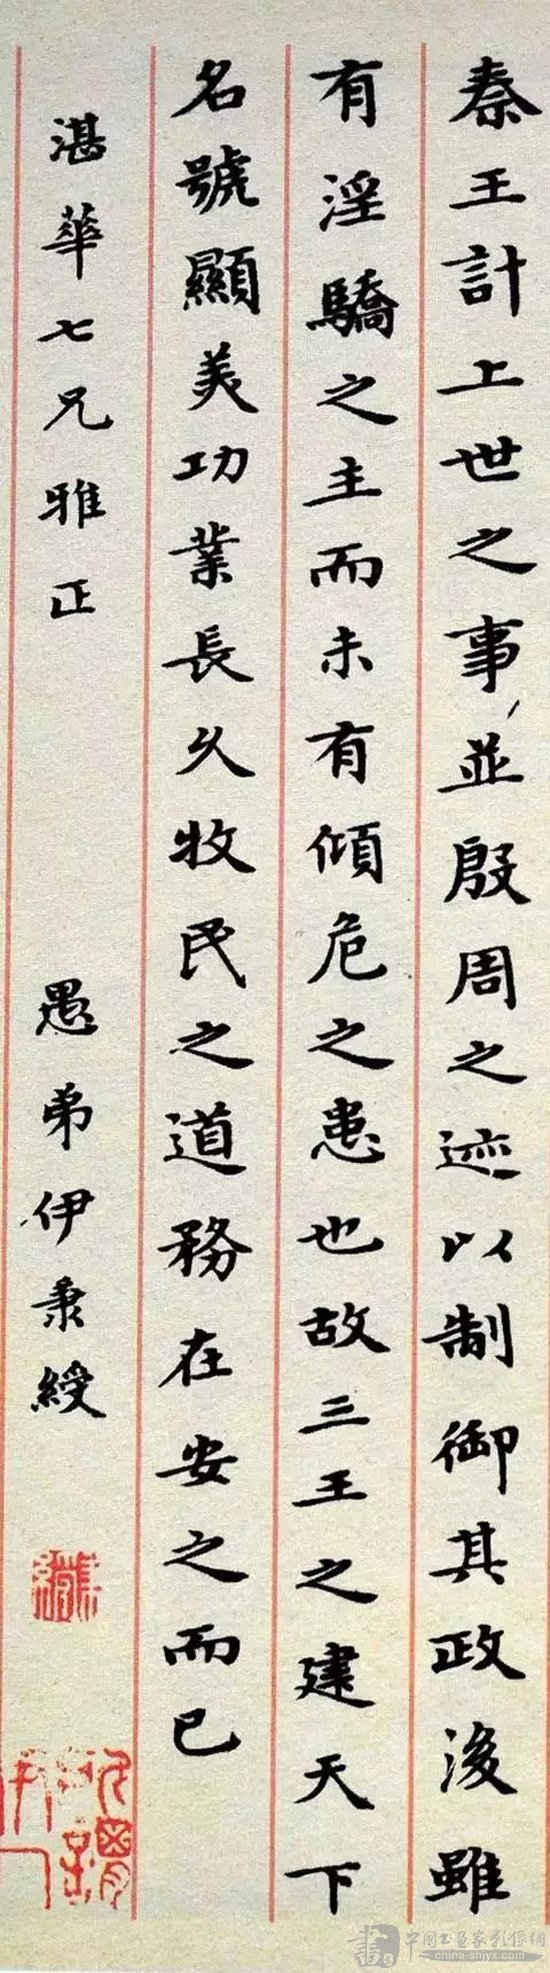 秦王計上世之事並殷周之迹以制御其政後雖
有淫驕之主而未有傾危之患也故三王之建天下
名號顯美功業長久牧民之道務在安之而已
湛華七兄雅正
愚弟伊秉綬
中国书画家影像网
china-shjyx.com